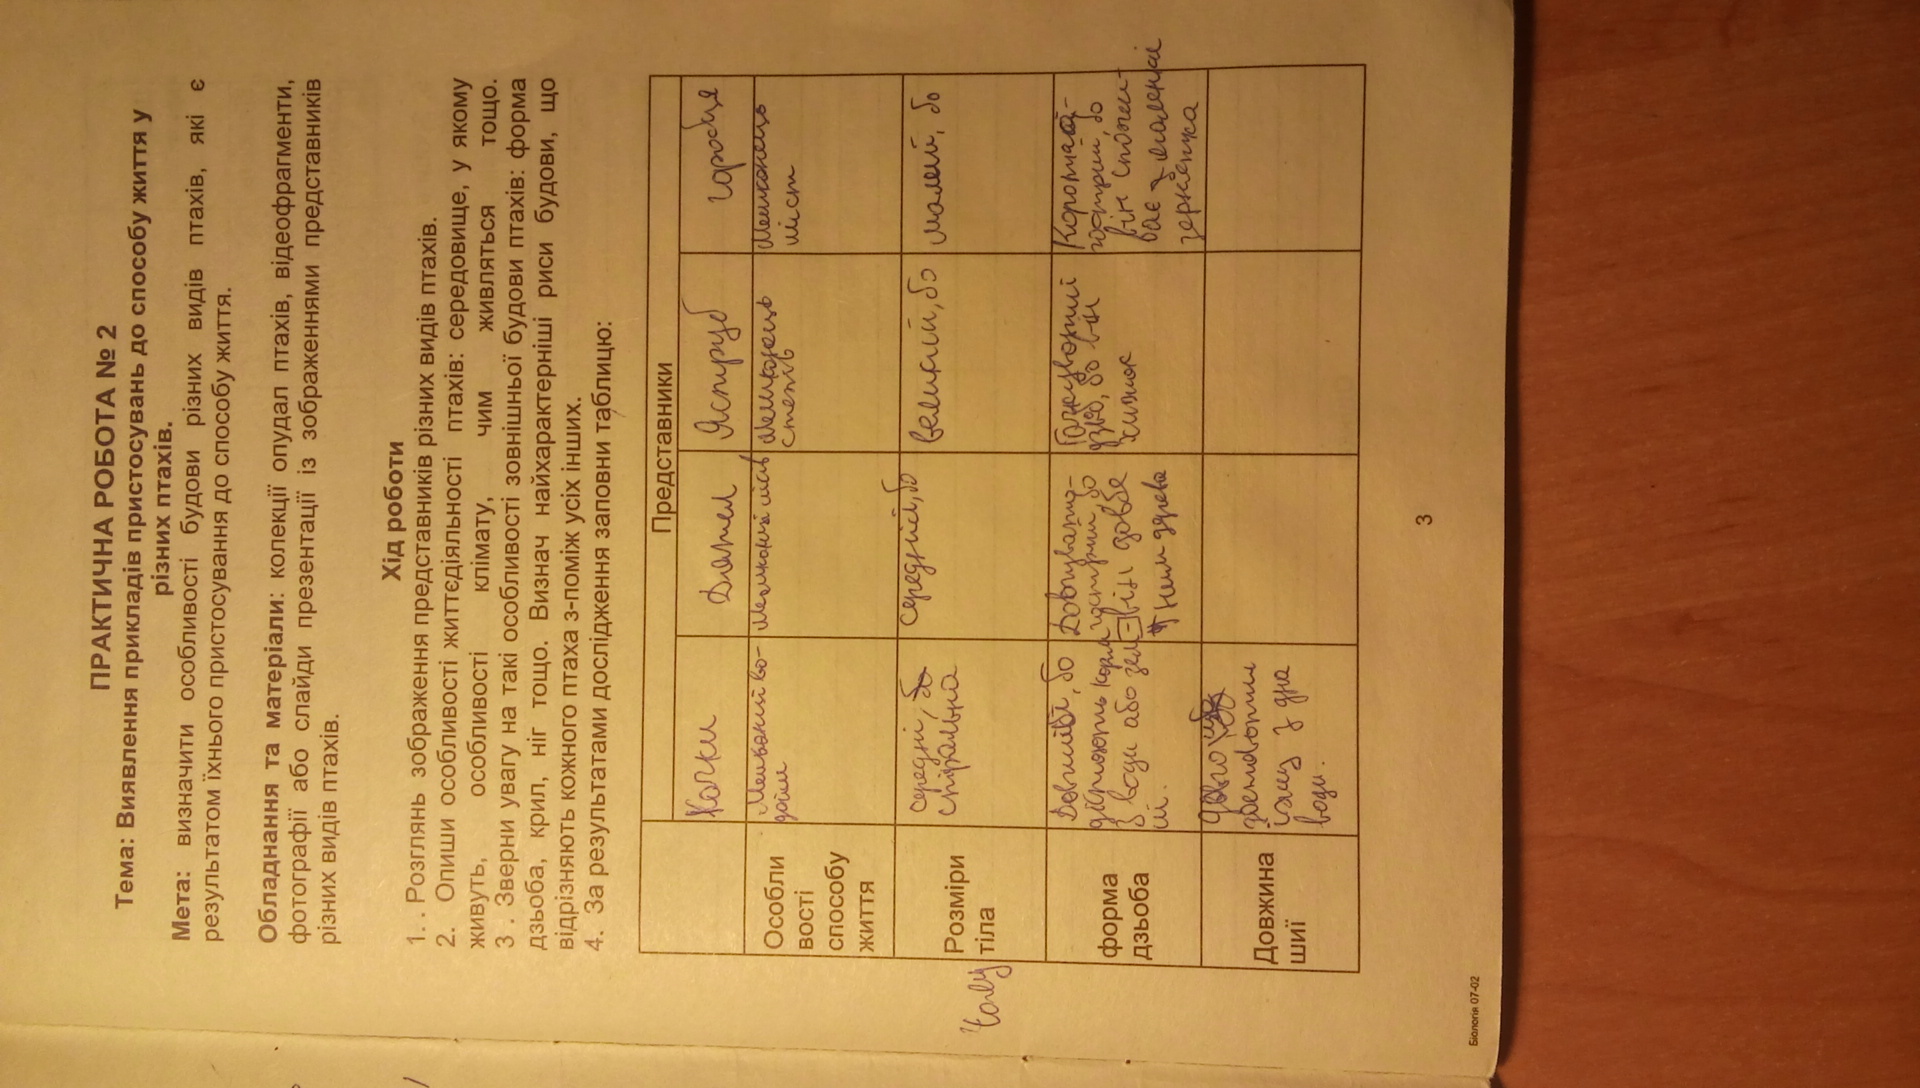 ПРАКТИЧНА РОБОТА № 2
Тема: Виявлення прикладів пристосувань до способу життя у
різних птахів.
Мета: визначити особливості будови різних видів птахів, які є
результатом їхнього пристосування до способу життя.
Обладнання та матеріали: колекції опудал птахів, відеофрагменти,
фотографії або слайди презентації із зображеннями представників
різних видів птахів.
Хід роботи
1. . Розглянь зображення представників різних видів птахів.
2. Опиши особливості життєдіяльності птахів: середовище, у якому
живуть, особливості клімату, чим живляться тощо.
3 . Зверни увагу на такі особливості зовнішньої будови птахів: форма
дзьоба, крил, ніг тощо. Визнач найхарактерніші риси будови, що
відрізняють кожного птаха з-поміж усіх інших.
4. За результатами дослідження заповни таблицю:
Представники
Качки
Дятел
Яструб
горобця
Особли
вості
способу
життя
Мешканці во-
дойм
Мешканці лісів
Мешканець
степів
Мешканець
міст
Розміри
тіла
Чому
середні, бо
спіральна
середній, бо
великий, бо
малий, бо
форма
дзьоба
Довгий, бо
дістають корм
з води або зем
лі.
Довгувато-
гострий, бо
він довбе
ним древа
Гачкуватий
дзьоб, бо він
хижак
Коротко-
гострий, бо
він спожи-
ває маленькі
зернятка
Довжина
шиї
Довго
їжу з дна
води.
3
Біологія 07-02